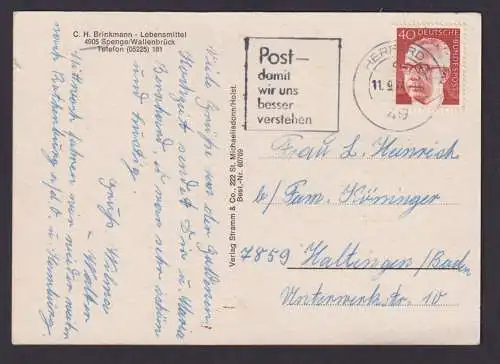 C. H. Brinkmann - Lebensmittel
4905 Spenge/Wallenbrück
Telefon (05225) 181
Viele Grüße von der Goldenen
Hochzeit sendet Dir u. Maria
Es ist hier sehr schön
und lustig.
Mittwoch fahren wir wieder weiter
nach Rothenburg o/d. T. u. Hamburg.
Gruß Wilma
Walter
Verlag Stramm & Co., 222 St. Michaelisdonn/Holst.
Best.-Nr. 60769
Post–
damit
wir uns
besser
verstehen
HERFORD
11.9.
49
40 DEUTSCHE
BUNDESPOST
Frau L. Heinrich
b/ Fam. Köninger
7859 Haltingen/Baden
Unterwerkstr. 10